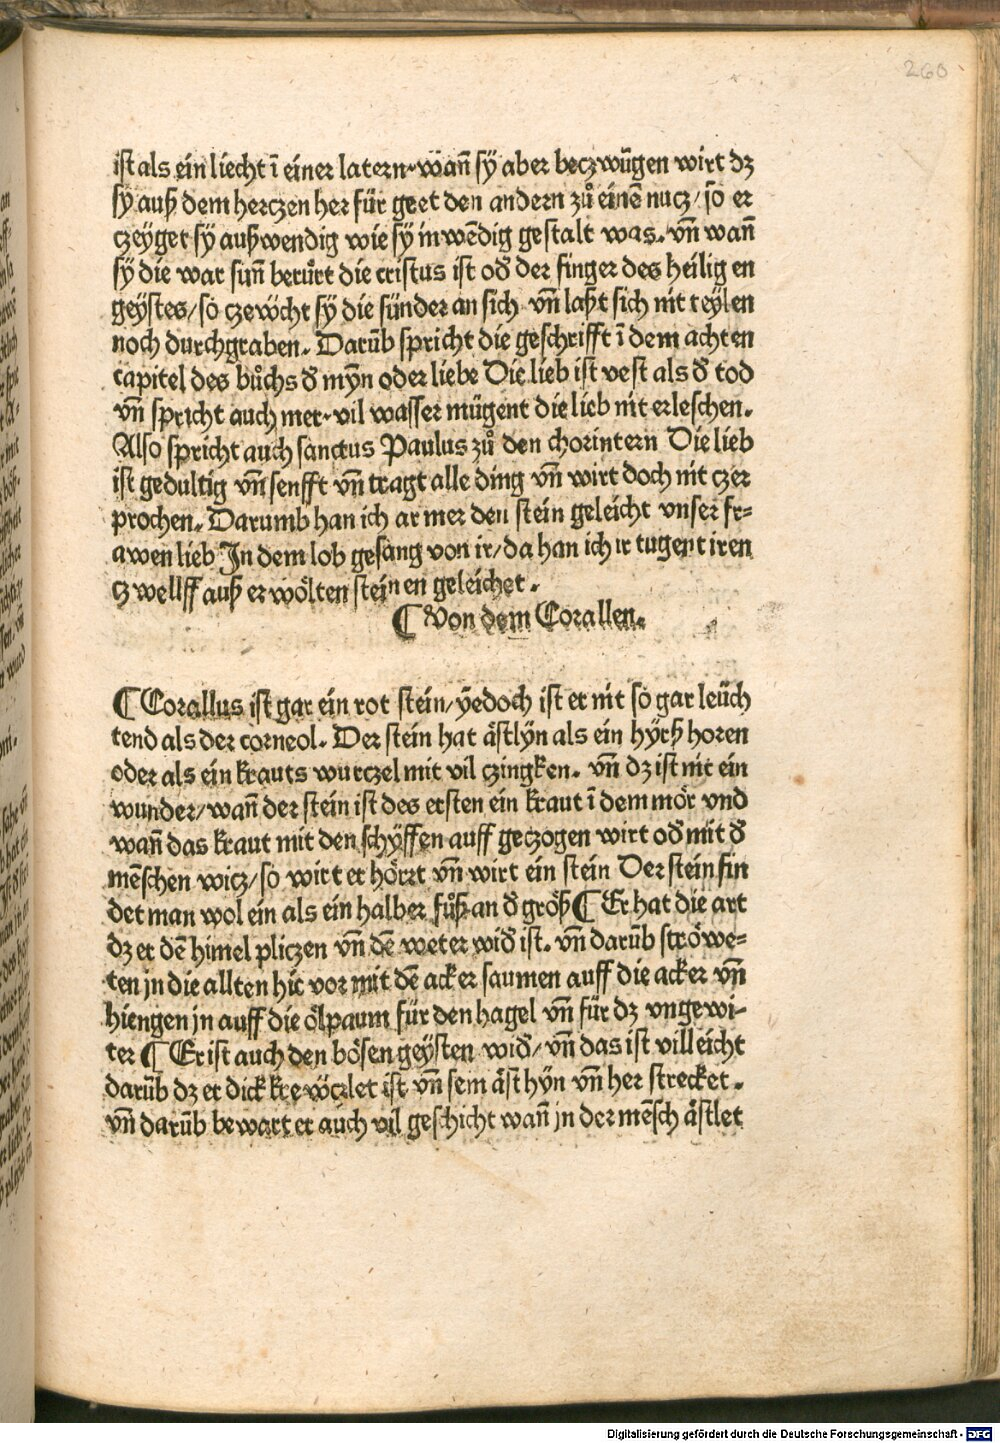 260
ist als ein liecht ī einer latern·wañ sÿ aber beczwūgen wirt dz
sÿ auß dem herczen her für geet den andern zů einē nucz/so er
czeyget sÿ außwendig wie sÿ inwēdig gestalt was. vñ wañ
sÿ die war suñ berürt die cristus ist oď der finger des heilig en
geÿstes/so czewcht sÿ die sünder an sich vñ laßt sich nit teylen
noch durchgraben. Darūb spricht die geschrifft ī dem achten
capitel des bůchs ď mÿn oder liebe Die lieb ist vest als ď tod
vñ spricht auch mer·vil wasser mügent die lieb nit erleschen.
Also spricht auch sanctus Paulus zů den chorintern Die lieb
ist gedultig vñ senfft vñ tragt alle ding vñ wirt doch nit czer
prochen. Darumb han ich armer den stein geleicht vnser fr=
awen lieb In dem lob gesang von ir/da han ich ir tugent iren
czwellff auß erwölten steinen geleichet.
¶ Von dem Corallen.
¶ Corallus ist gar ein rot stein/ÿedoch ist er nit so gar leüch
tend als der corneol. Der stein hat ästlÿn als ein hÿrß horen
oder als ein krauts wurczel mit vil czingken. vñ dz ist nit ein
wunder/wañ der stein ist des ersten ein kraut ī dem mör vnd
wañ das kraut mit den schÿffen auff geczogen wirt oď mit ď
mēschen wicz/so wirt er hörzt vñ wirt ein stein Der stein fin
det man wol ein als ein halber fůß an ď größ ¶ Er hat die art
dz er dē himel pliczen vñ dē weter wiď ist. vñ darūb ströwe=
ten jn die allten hie vor mit dē acker saumen auff die acker vñ
hiengen jn auff die ölpaum für den hagel vñ für dz vngewi-
ter ¶ Er ist auch den bösen geÿsten wiď/vñ das ist villeicht
darūb dz er dick krewczlet ist vñ sem äst hÿn vñ her strecket.
vñ darūb bewart er auch vil geschicht wañ jn der mēsch ästlet
Digitalisierung gefördert durch die Deutsche Forschungsgemeinschaft - DFG